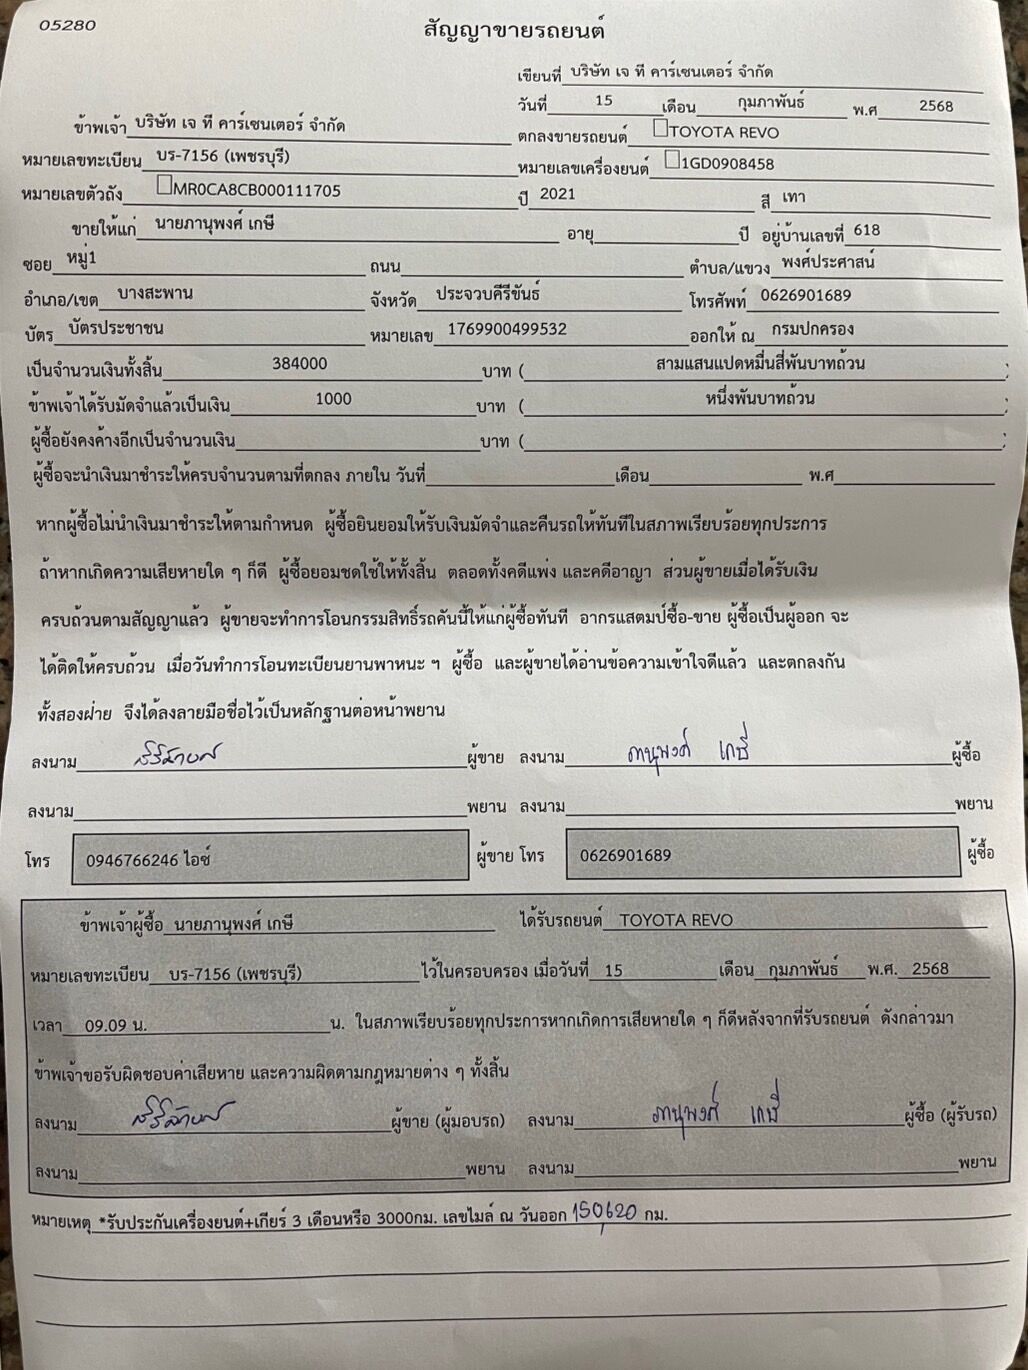 05280
สัญญาขายรถยนต์
เขียนที่ บริษัท เจ ที คาร์เซนเตอร์ จำกัด
วันที่ 15 เดือน กุมภาพันธ์ พ.ศ 2568
ข้าพเจ้า บริษัท เจ ที คาร์เซนเตอร์ จำกัด ตกลงขายรถยนต์ TOYOTA REVO
หมายเลขทะเบียน บร-7156 (เพชรบุรี) หมายเลขเครื่องยนต์ 1GD0908458
หมายเลขตัวถัง MR0CA8CB000111705 ปี 2021 สี เทา
ขายให้แก่ นายภานุพงศ์ เกษี อายุ ปี อยู่บ้านเลขที่ 618
ซอย หมู่1 ถนน ตำบล/แขวง พงศ์ประศาสน์
อำเภอ/เขต บางสะพาน จังหวัด ประจวบคีรีขันธ์ โทรศัพท์ 0626901689
บัตร บัตรประชาชน หมายเลข 1769900499532 ออกให้ ณ กรมปกครอง
เป็นจำนวนเงินทั้งสิ้น 384000 บาท ( สามแสนแปดหมื่นสี่พันบาทถ้วน )
ข้าพเจ้าได้รับมัดจำแล้วเป็นเงิน 1000 บาท ( หนึ่งพันบาทถ้วน )
ผู้ซื้อยังคงค้างอีกเป็นจำนวนเงิน บาท ( )
ผู้ซื้อจะนำเงินมาชำระให้ครบจำนวนตามที่ตกลง ภายใน วันที่ เดือน พ.ศ
หากผู้ซื้อไม่นำเงินมาชำระให้ตามกำหนด ผู้ซื้อยินยอมให้รับเงินมัดจำและคืนรถให้ทันทีในสภาพเรียบร้อยทุกประการ
ถ้าหากเกิดความเสียหายใด ๆ ก็ดี ผู้ซื้อยอมชดใช้ให้ทั้งสิ้น ตลอดทั้งคดีแพ่ง และคดีอาญา ส่วนผู้ขายเมื่อได้รับเงิน
ครบถ้วนตามสัญญาแล้ว ผู้ขายจะทำการโอนกรรมสิทธิ์รถคันนี้ให้แก่ผู้ซื้อทันที อากรแสตมป์ซื้อ-ขาย ผู้ซื้อเป็นผู้ออก จะ
ได้ติดให้ครบถ้วน เมื่อวันทำการโอนทะเบียนยานพาหนะ ฯ ผู้ซื้อ และผู้ขายได้อ่านข้อความเข้าใจดีแล้ว และตกลงกัน
ทั้งสองฝ่าย จึงได้ลงลายมือชื่อไว้เป็นหลักฐานต่อหน้าพยาน
ลงนาม ผู้ขาย ลงนาม ภานุพงศ์ เกษี ผู้ซื้อ
ลงนาม พยาน ลงนาม พยาน
โทร 0946766246 ไอซ์ ผู้ขาย โทร 0626901689 ผู้ซื้อ
ข้าพเจ้าผู้ซื้อ นายภานุพงศ์ เกษี ได้รับรถยนต์ TOYOTA REVO
หมายเลขทะเบียน บร-7156 (เพชรบุรี) ไว้ในครอบครอง เมื่อวันที่ 15 เดือน กุมภาพันธ์ พ.ศ. 2568
เวลา 09.09 น. น. ในสภาพเรียบร้อยทุกประการหากเกิดการเสียหายใด ๆ ก็ดีหลังจากที่รับรถยนต์ ดังกล่าวมา
ข้าพเจ้าขอรับผิดชอบค่าเสียหาย และความผิดตามกฎหมายต่าง ๆ ทั้งสิ้น
ลงนาม ผู้ขาย (ผู้มอบรถ) ลงนาม ภานุพงศ์ เกษี ผู้ซื้อ (ผู้รับรถ)
ลงนาม พยาน ลงนาม พยาน
หมายเหตุ *รับประกันเครื่องยนต์+เกียร์ 3 เดือนหรือ 3000กม. เลขไมล์ ณ วันออก 150,620 กม.